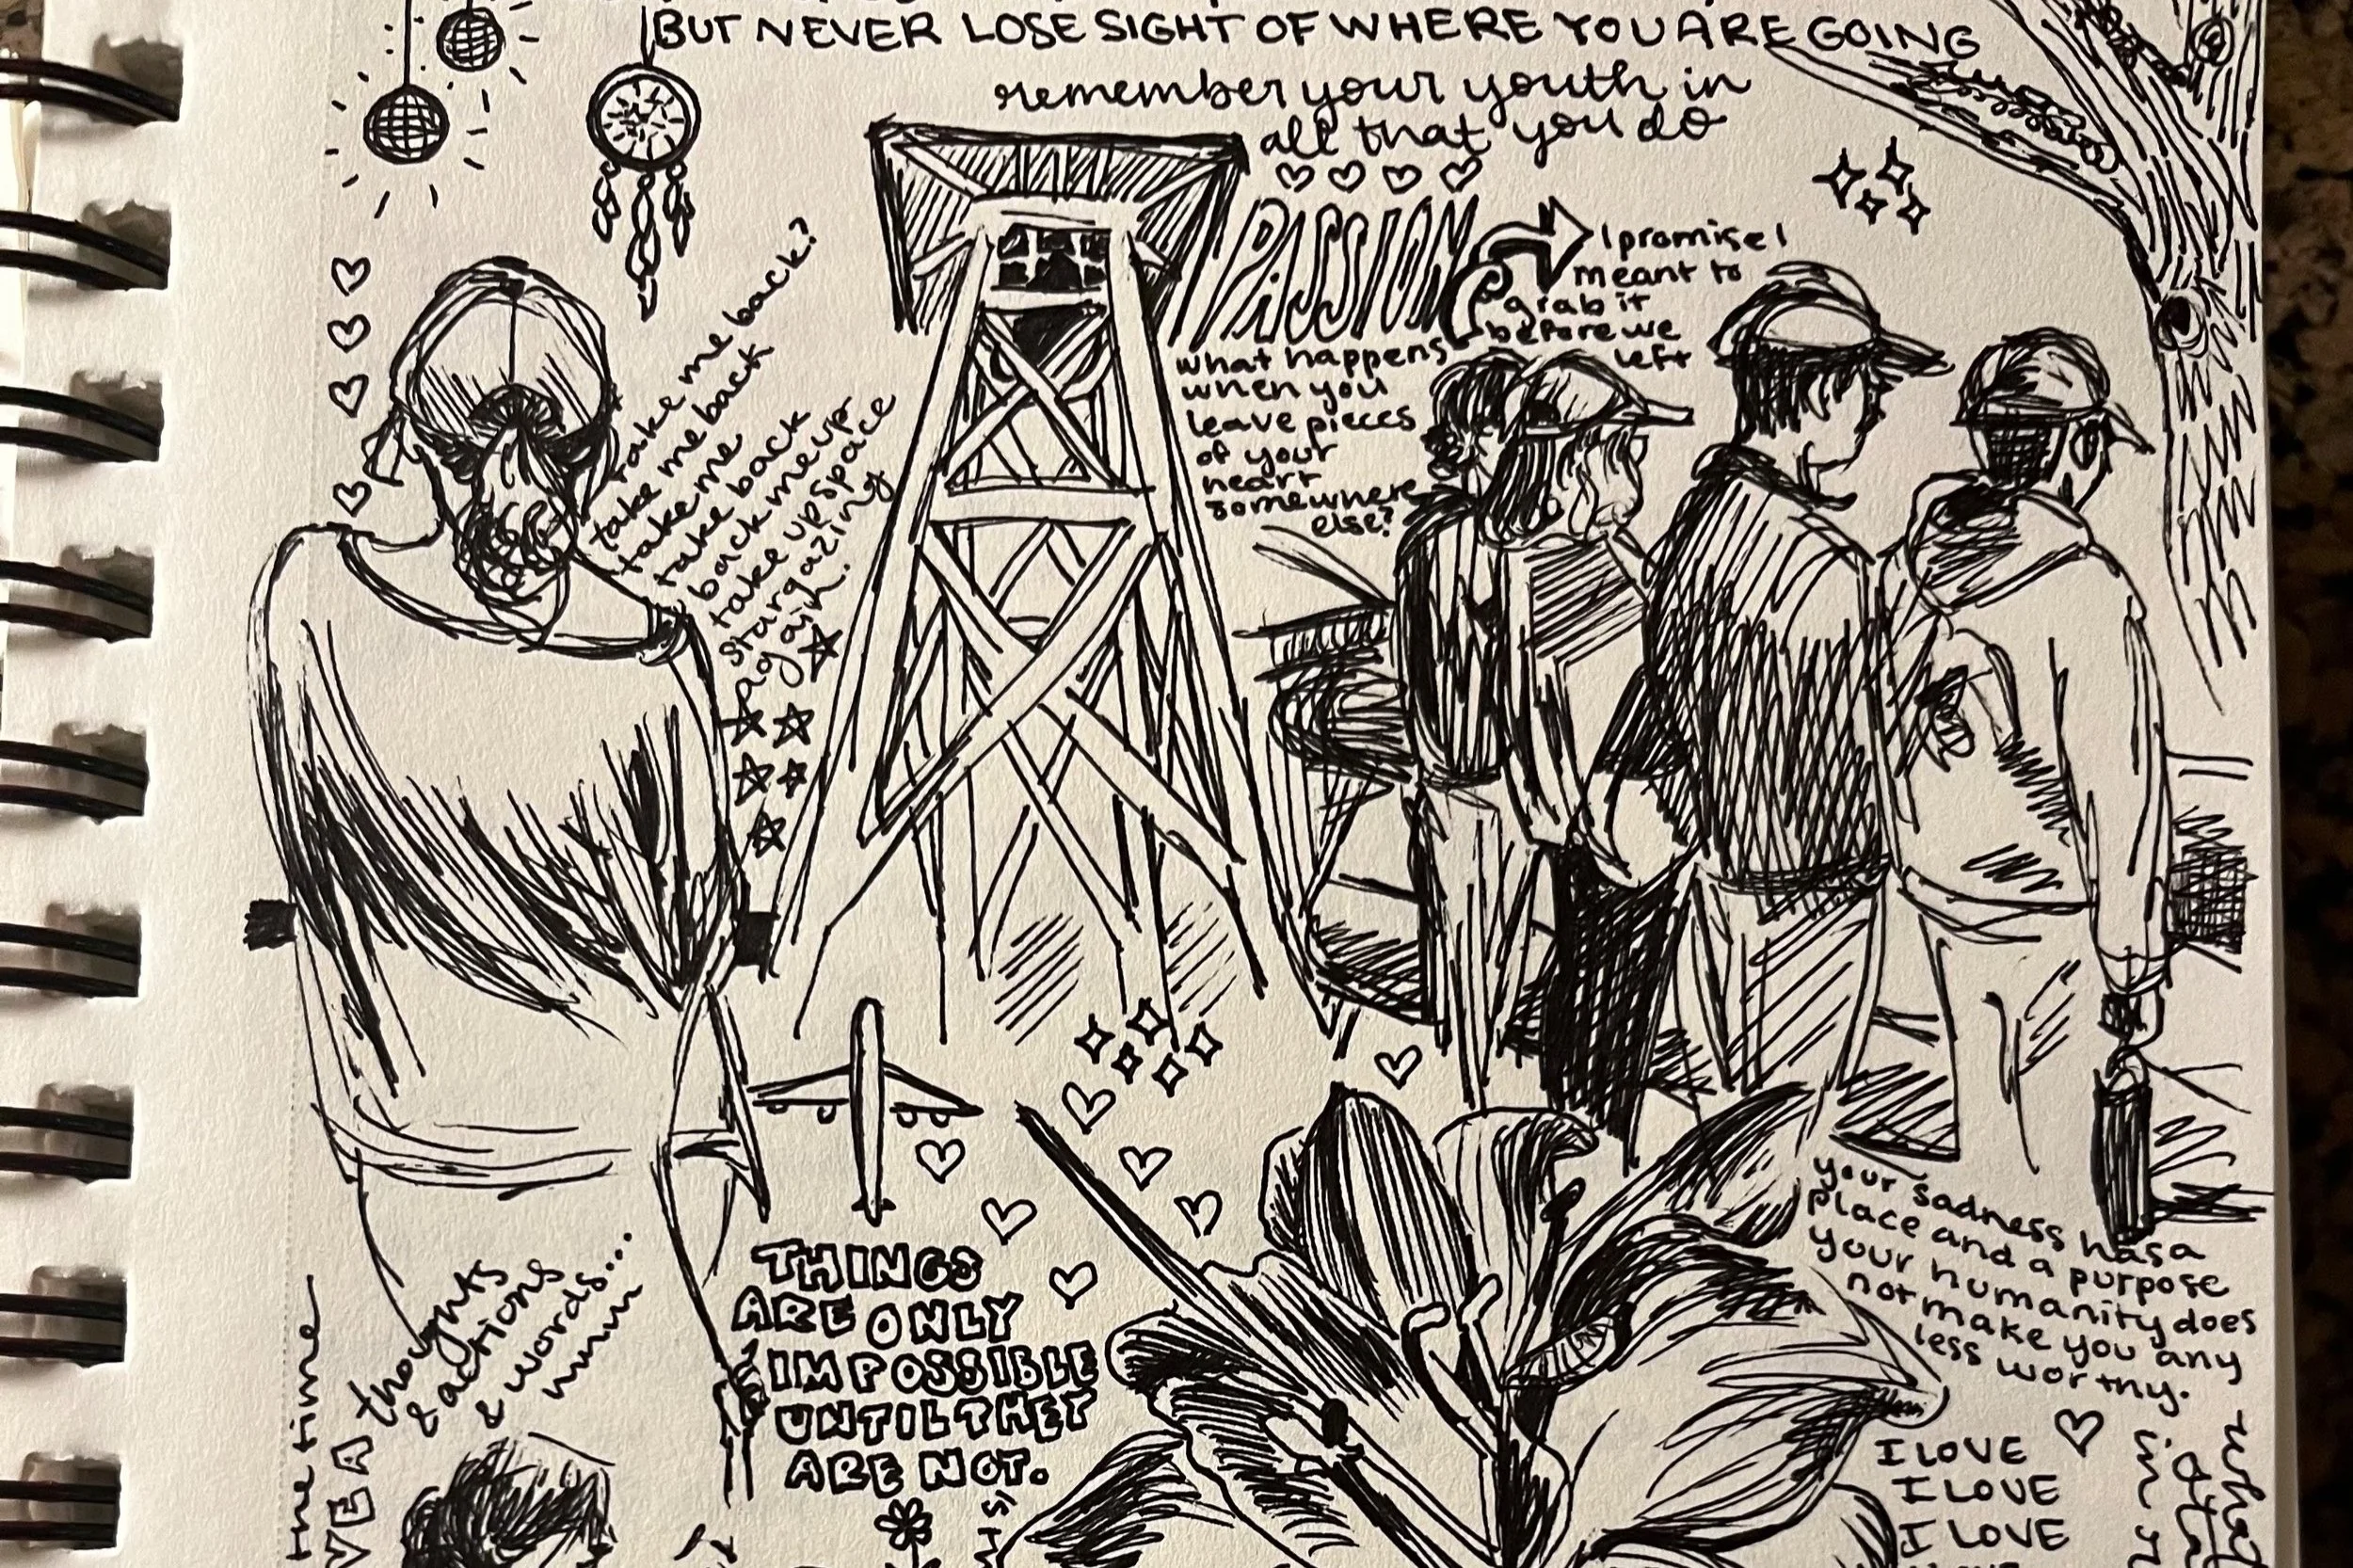 BUT NEVER LOSE SIGHT OF WHERE YOU ARE GOING
remember your youth in
all that you do
PASSION
I promise I
meant to
grab it
before we
left
what happens
when you
leave pieces
of your
heart
somewhere
else?
take me back?
take me back
take me
take back
back me up
take up space
stargazing
again.
THINGS
ARE ONLY
IMPOSSIBLE
UNTIL THEY
ARE NOT.
your sadness has a
place and a purpose
your humanity does
not make you any
less worthy.
thoughts
& actions
& words...
mmm
the time
I LOVE
I LOVE
I LOVE